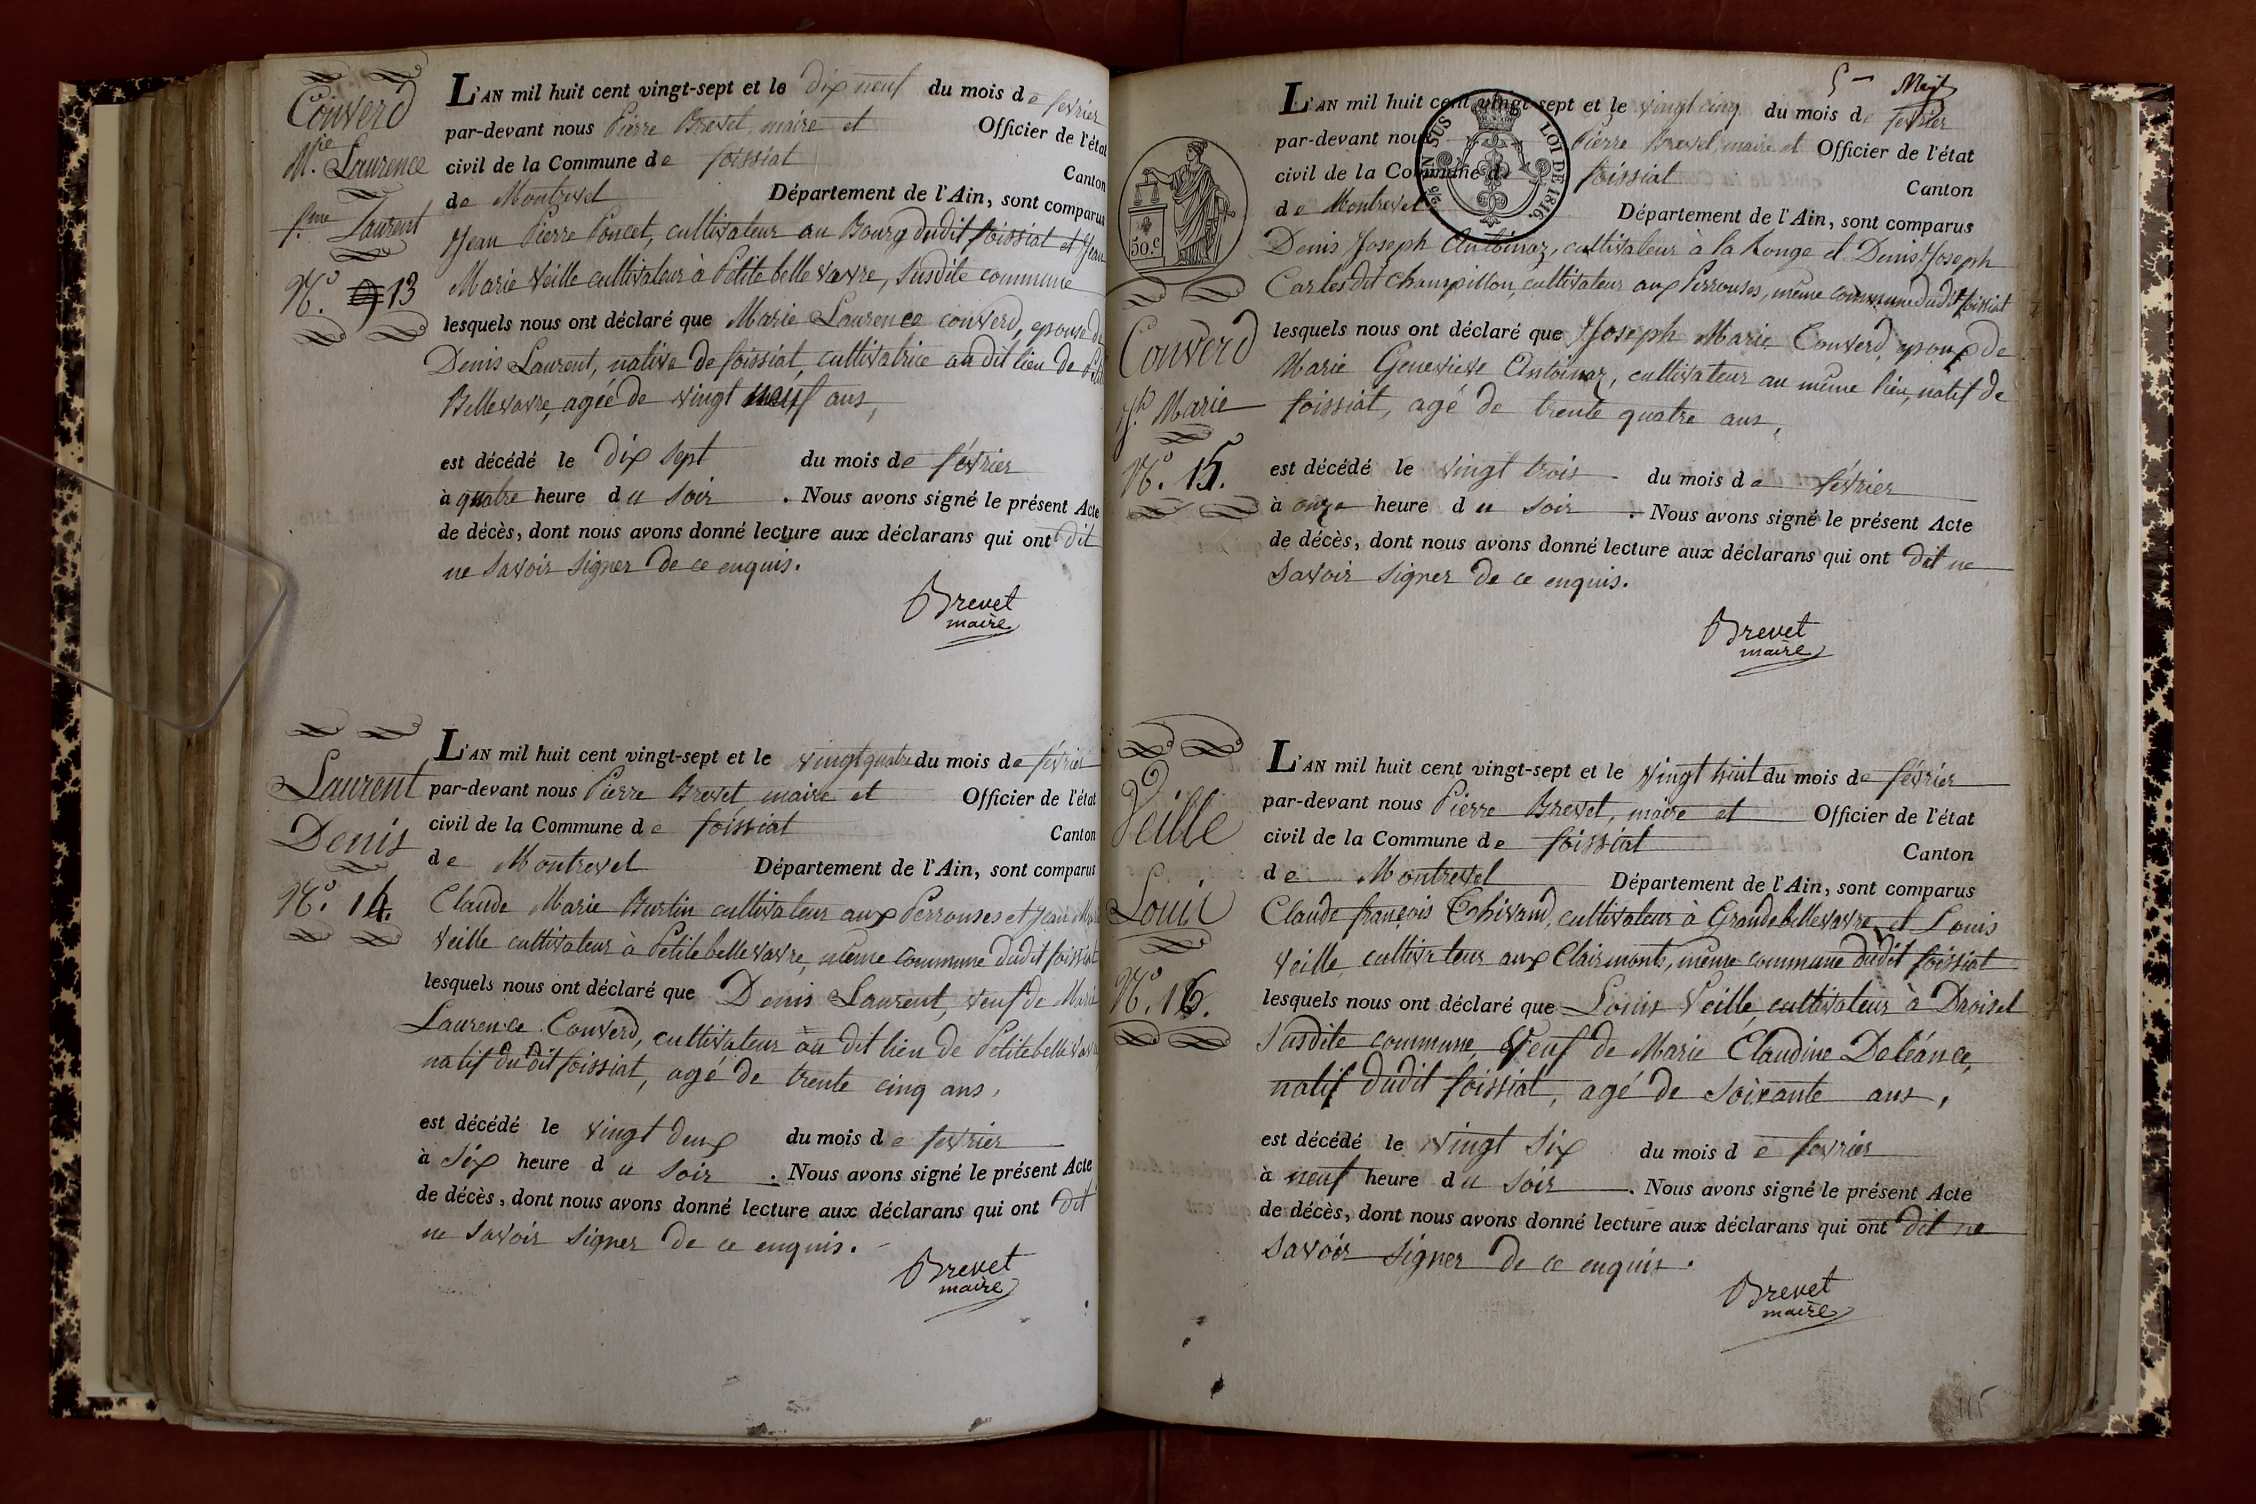 Converd
M.ie Laurence
f.me Laurent
N.o 13
L'AN mil huit cent vingt-sept et le dix neuf du mois de février
par-devant nous Pierre Brevet, maire et Officier de l'état
civil de la Commune de foissiat Canton
de Montrevel Département de l'Ain, sont comparus
Jean Pierre Poncet, cultivateur au Bourg dudit foissiat et Jean
Marie Veille cultivateur à Petite belle vavre, susdite commune
lesquels nous ont déclaré que Marie Laurence converd, epouse de
Denis Laurent, native de foissiat, cultivatrice au dit lieu de Petite
Bellevavre, agée de vingt neuf ans,
est décédé le dix sept du mois de février
à quatre heure du soir . Nous avons signé le présent Acte
de décès, dont nous avons donné lecture aux déclarans qui ont dit
ne savoir signer de ce enquis.
Brevet
maire
Laurent
Denis
N.o 14.
L'AN mil huit cent vingt-sept et le vingt quatre du mois de février
par-devant nous Pierre Brevet, maire et Officier de l'état
civil de la Commune de foissiat Canton
de Montrevel Département de l'Ain, sont comparus
Claude Marie Burtin cultivateur aux Perrouses et Jean Marie
Veille cultivateur à Petite belle vavre, même commune dudit foissiat
lesquels nous ont déclaré que Denis Laurent, veuf de Marie
Laurence Converd, cultivateur au dit lieu de Petite belle vavre
natif dudit foissiat, agé de trente cinq ans,
est décédé le vingt deux du mois de fevrier
à six heure du soir . Nous avons signé le présent Acte
de décès, dont nous avons donné lecture aux déclarans qui ont dit
ne savoir signer de ce enquis.
Brevet
maire
LOI DE 1816.
50.c
Converd
J.h Marie
N.o 15.
L'AN mil huit cent vingt-sept et le vingt cinq du mois de fevrier
par-devant nous Pierre Brevet, maire et Officier de l'état
civil de la Commune de foissiat Canton
de Montrevel Département de l'Ain, sont comparus
Denis Joseph Antoinaz, cultivateur à la Longe et Denis Joseph
Carles dit Champillon, cultivateur aux Perrouses, même commune dudit foissiat
lesquels nous ont déclaré que Joseph Marie Converd, epoux de
Marie Genevieve Antoinaz, cultivateur au même lieu, natif de
foissiat, agé de trente quatre ans,
est décédé le vingt trois du mois de février
à onze heure du soir . Nous avons signé le présent Acte
de décès, dont nous avons donné lecture aux déclarans qui ont dit ne
savoir signer de ce enquis.
Brevet
maire
Veille
Louis
N.o 16.
L'AN mil huit cent vingt-sept et le vingt huit du mois de février
par-devant nous Pierre Brevet, maire et Officier de l'état
civil de la Commune de foissiat Canton
de Montrevel Département de l'Ain, sont comparus
Claude françois Chivand, cultivateur à Grande belle vavre, et Louis
Veille cultivateur aux Clairmonts, même commune dudit foissiat
lesquels nous ont déclaré que Louis Veille, cultivateur à Droisel
susdite commune, Veuf de Marie Claudine Deléance,
natif dudit foissiat, agé de soixante ans,
est décédé le vingt six du mois de fevrier
à neuf heure du soir . Nous avons signé le présent Acte
de décès, dont nous avons donné lecture aux déclarans qui ont dit ne
savoir signer de ce enquis.
Brevet
maire
115